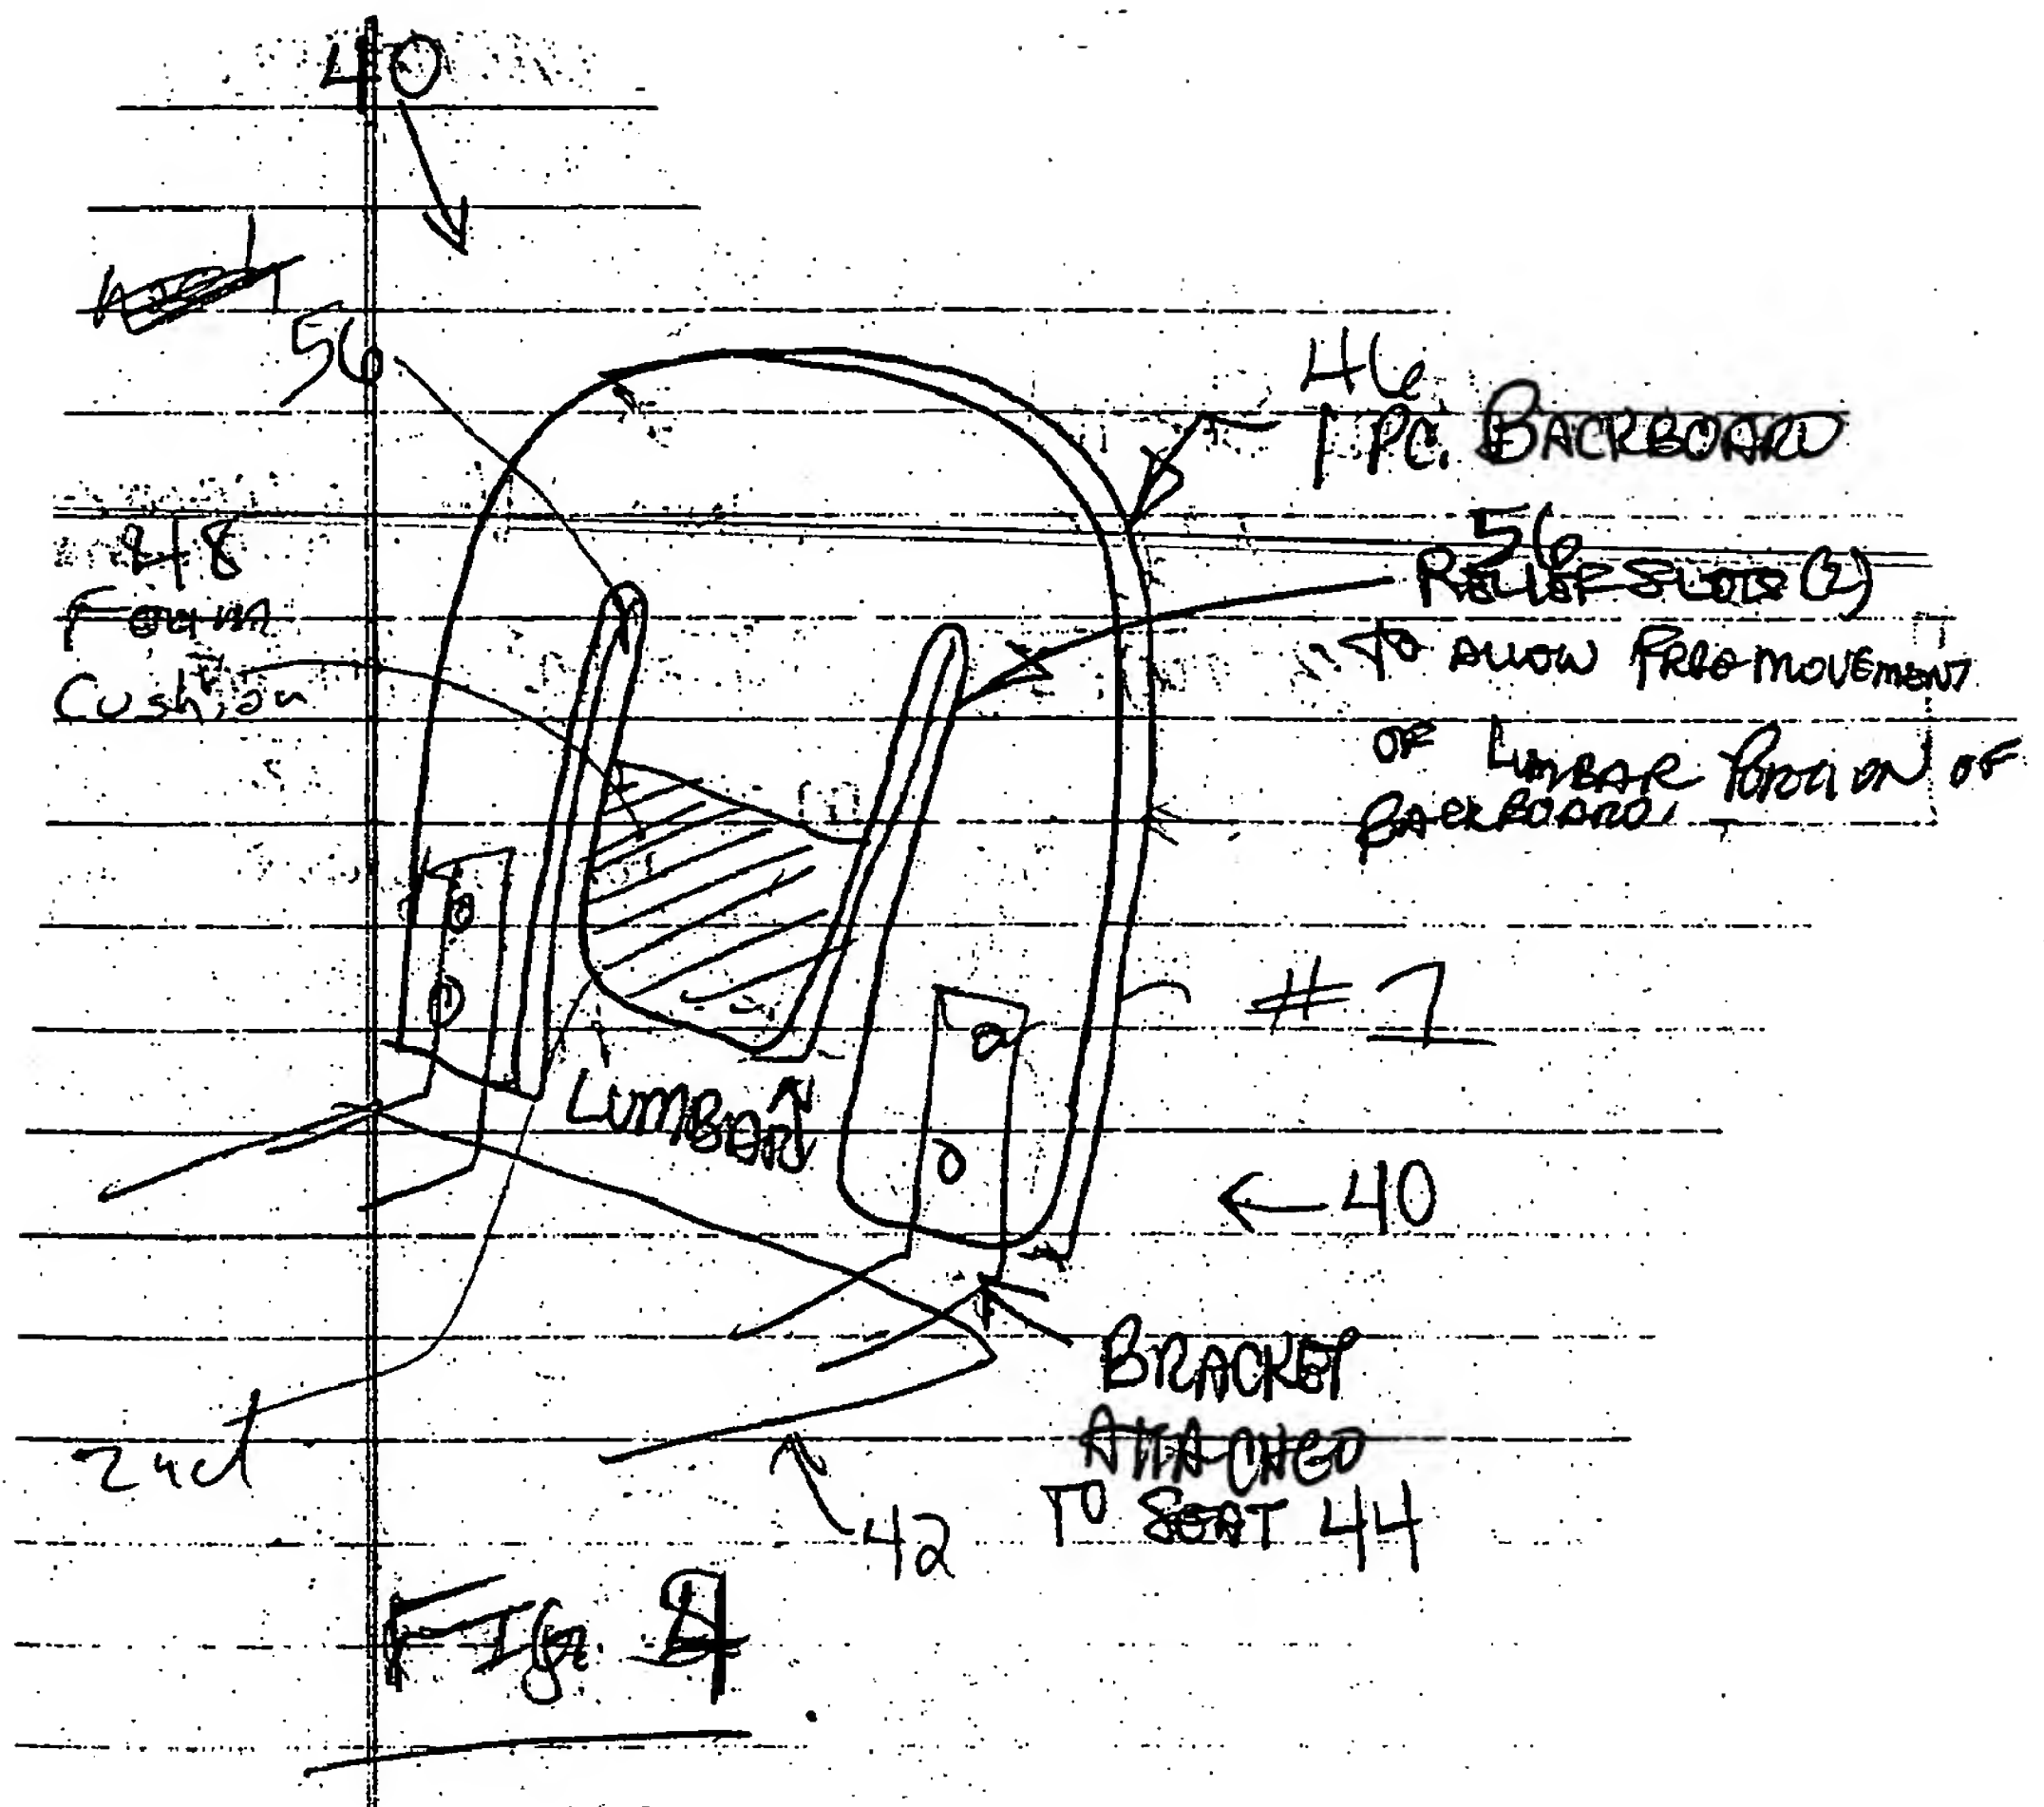 40
56
46
1 PC. BACKBOARD
48
Foam
Cushion
56
RELIEF SLOTS (2)
TO ALLOW FREE MOVEMENT
OF LUMBAR PORTION OF
BACKBOARD.
# 7
LUMBAR
← 40
BRACKET
ATTACHED
TO SEAT 44
42
Fig.